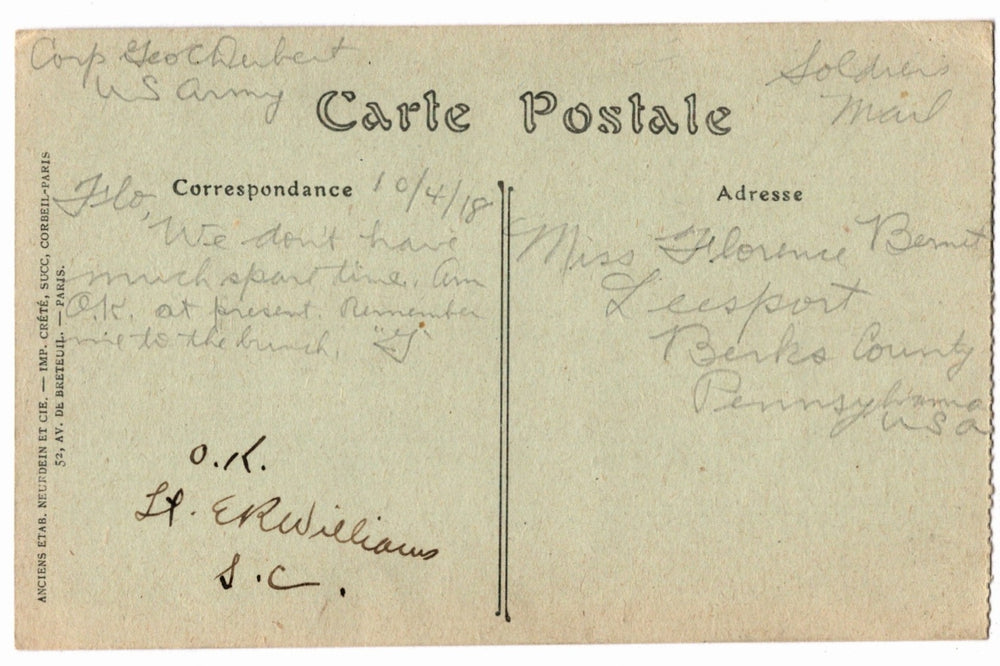 Corp Geo C Deibert
US Army
Soldier's
Mail
Carte Postale
Correspondance
Adresse
10/4/18
Flo,
We don't have
much spare time. Am
O.K. at present. Remember
me to the bunch. "G"
Miss Florence Bernet
Leesport
Berks County
Pennsylvania
USA
O.K.
Lt. E R Williams
S.C.
ANCIENS ETAB. NEURDEIN ET CIE. — IMP. CRÉTÉ, SUCC, CORBEIL-PARIS
52, AV. DE BRETEUIL. — PARIS.